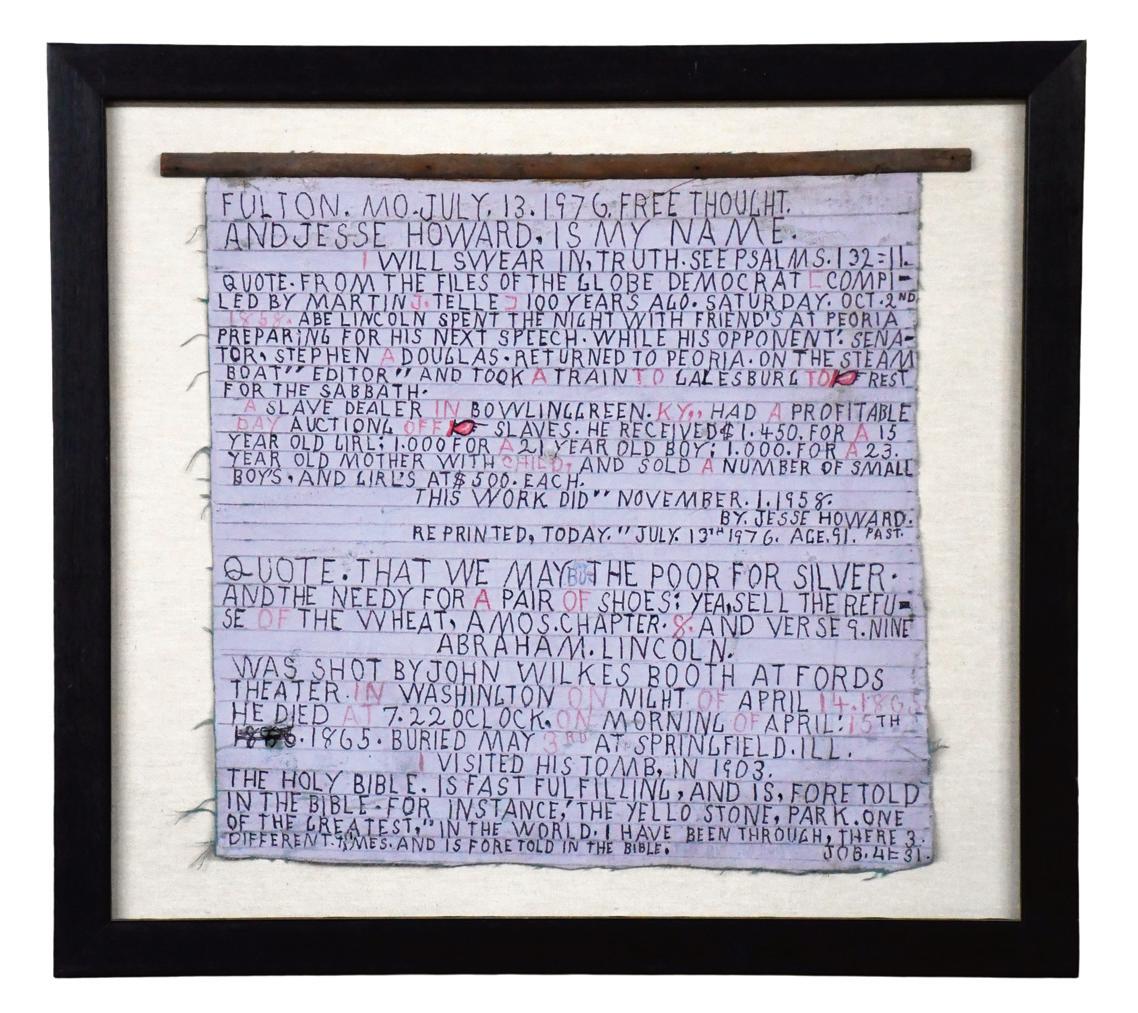 FULTON. MO. JULY. 13. 1976. FREE THOUGHT.
AND JESSE HOWARD, IS MY NAME.
I WILL SWEAR IN, TRUTH. SEE PSALMS. 132=11.
QUOTE. FROM THE FILES OF THE GLOBE DEMOCRAT [COMPI-
LED BY MARTIN J. TELLE] 100 YEARS AGO. SATURDAY. OCT. 2ND
1858. ABE LINCOLN SPENT THE NIGHT WITH FRIEND'S AT PEORIA
PREPARING FOR HIS NEXT SPEECH. WHILE HIS OPPONENT: SENA-
TOR, STEPHEN A DOUGLAS. RETURNED TO PEORIA. ON THE STEAM
BOAT" EDITOR" AND TOOK A TRAIN TO GALESBURG TO REST
FOR THE SABBATH.
A SLAVE DEALER IN BOWLINGGREEN. KY,, HAD A PROFITABLE
DAY AUCTIONG OFF SLAVES. HE RECEIVED $1.450. FOR A 15
YEAR OLD GIRL; 1.000 FOR A 21 YEAR OLD BOY; 1.000. FOR A 23.
YEAR OLD MOTHER WITH CHILD, AND SOLD A NUMBER OF SMALL
BOY'S, AND GIRL'S AT $500. EACH.
THIS WORK DID" NOVEMBER. 1. 1958.
BY. JESSE HOWARD.
REPRINTED, TODAY." JULY. 13TH 1976. AGE. 91. PAST.
QUOTE. THAT WE MAY BUY THE POOR FOR SILVER.
AND THE NEEDY FOR A PAIR OF SHOES; YEA, SELL THE REFU-
SE OF THE WHEAT, AMOS. CHAPTER. 8. AND VERSE 9. NINE
ABRAHAM. LINCOLN.
WAS SHOT BY JOHN WILKES BOOTH AT FORDS
THEATER. IN WASHINGTON ON NIGHT OF APRIL 14. 1865
HE DIED AT 7. 22 OCLOCK, ON MORNING OF APRIL: 15TH
1865. BURIED MAY 3RD AT SPRINGFIELD. ILL.
I VISITED HIS TOMB, IN 1903.
THE HOLY BIBLE. IS FAST FULFILLING, AND IS, FORETOLD
IN THE BIBLE. FOR INSTANCE," THE YELLO STONE, PARK. ONE
OF THE GREATEST," IN THE WORLD. I HAVE BEEN THROUGH, THERE 3.
DIFFERENT. TIMES. AND IS FORETOLD IN THE BIBLE. JOB. 41=31.